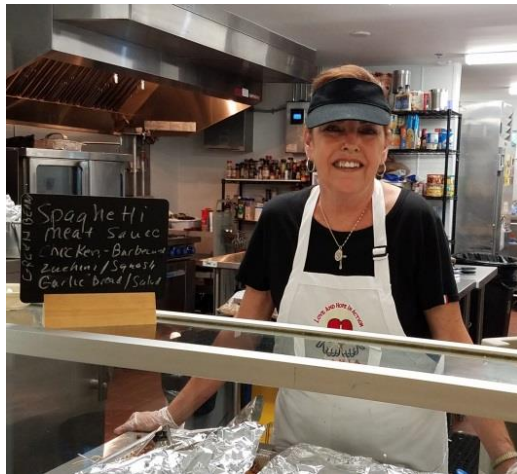 Spaghetti
meat sauce
Chicken-Barbecue
Zuchini/Squash
Garlic bread/Salad
LOVE AND HOPE IN ACTION